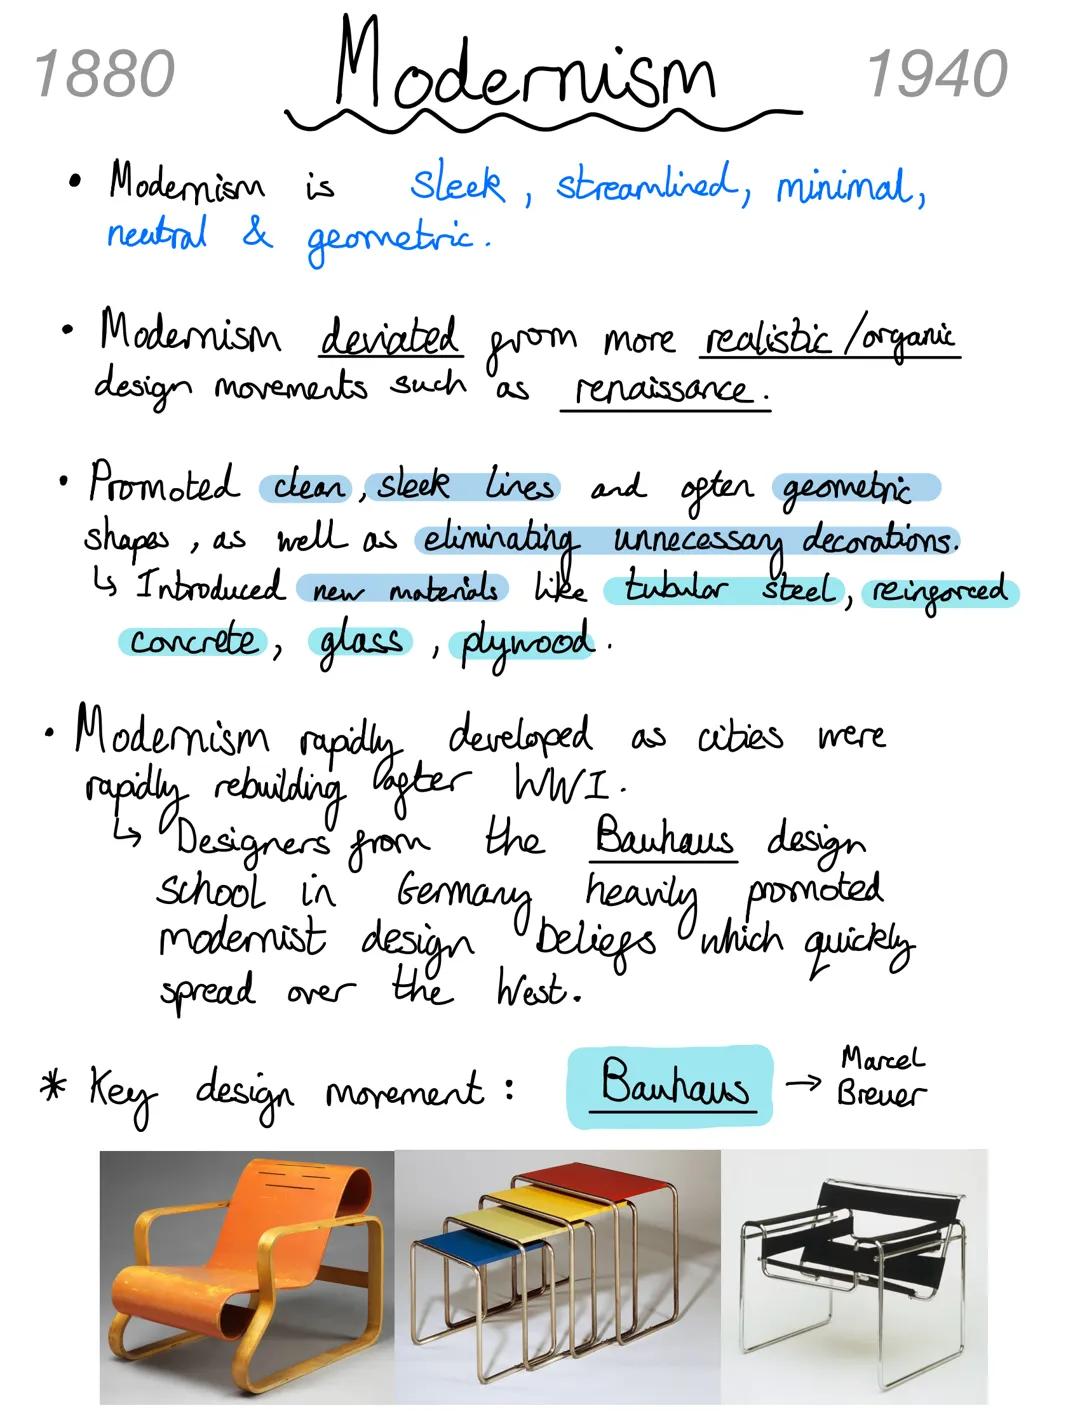 1880 Modernism 1940
• Modernism is sleek, streamlined, minimal,
neutral & geometric.
• Modernism deviated from more realistic/organic
design movements such as renaissance.
• Promoted clean, sleek lines and often geometric
shapes, as well as eliminating unnecessary decorations.
↳ Introduced new materials like tubular steel, reinforced
concrete, glass, plywood.
• Modernism rapidly developed as cities were
rapidly rebuilding after WWI.
↳ Designers from the Bauhaus design
school in Germany heavily promoted
modernist design beliefs which quickly
spread over the West.
* Key design movement: Bauhaus → Marcel
Breuer